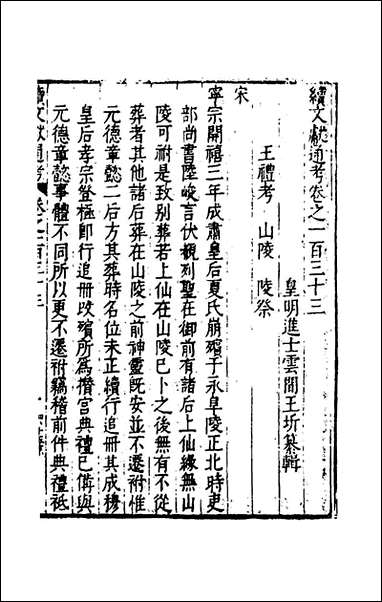 續文獻通考卷之一百三十三
皇明進士雲間王圻纂輯
王禮考 山陵 陵祭
宋
寧宗開禧三年成肅皇后夏氏崩殯于永阜陵正北時吏
部尚書陸峻言伏覩列聖在御前有諸后上仙緣無山
陵可祔是致别葬若上仙在山陵已卜之後無有不從
葬者其他諸后葬在山陵之前神靈既安並不遷祔惟
元德章懿二后方其葬時名位未正續行追冊其成穆
皇后孝宗登極即行追冊改殯所爲攢宮典禮已備與
元德章懿事體不同所以更不遷祔竊稽前件典禮祗
續文獻通考 卷之一百三十三 一